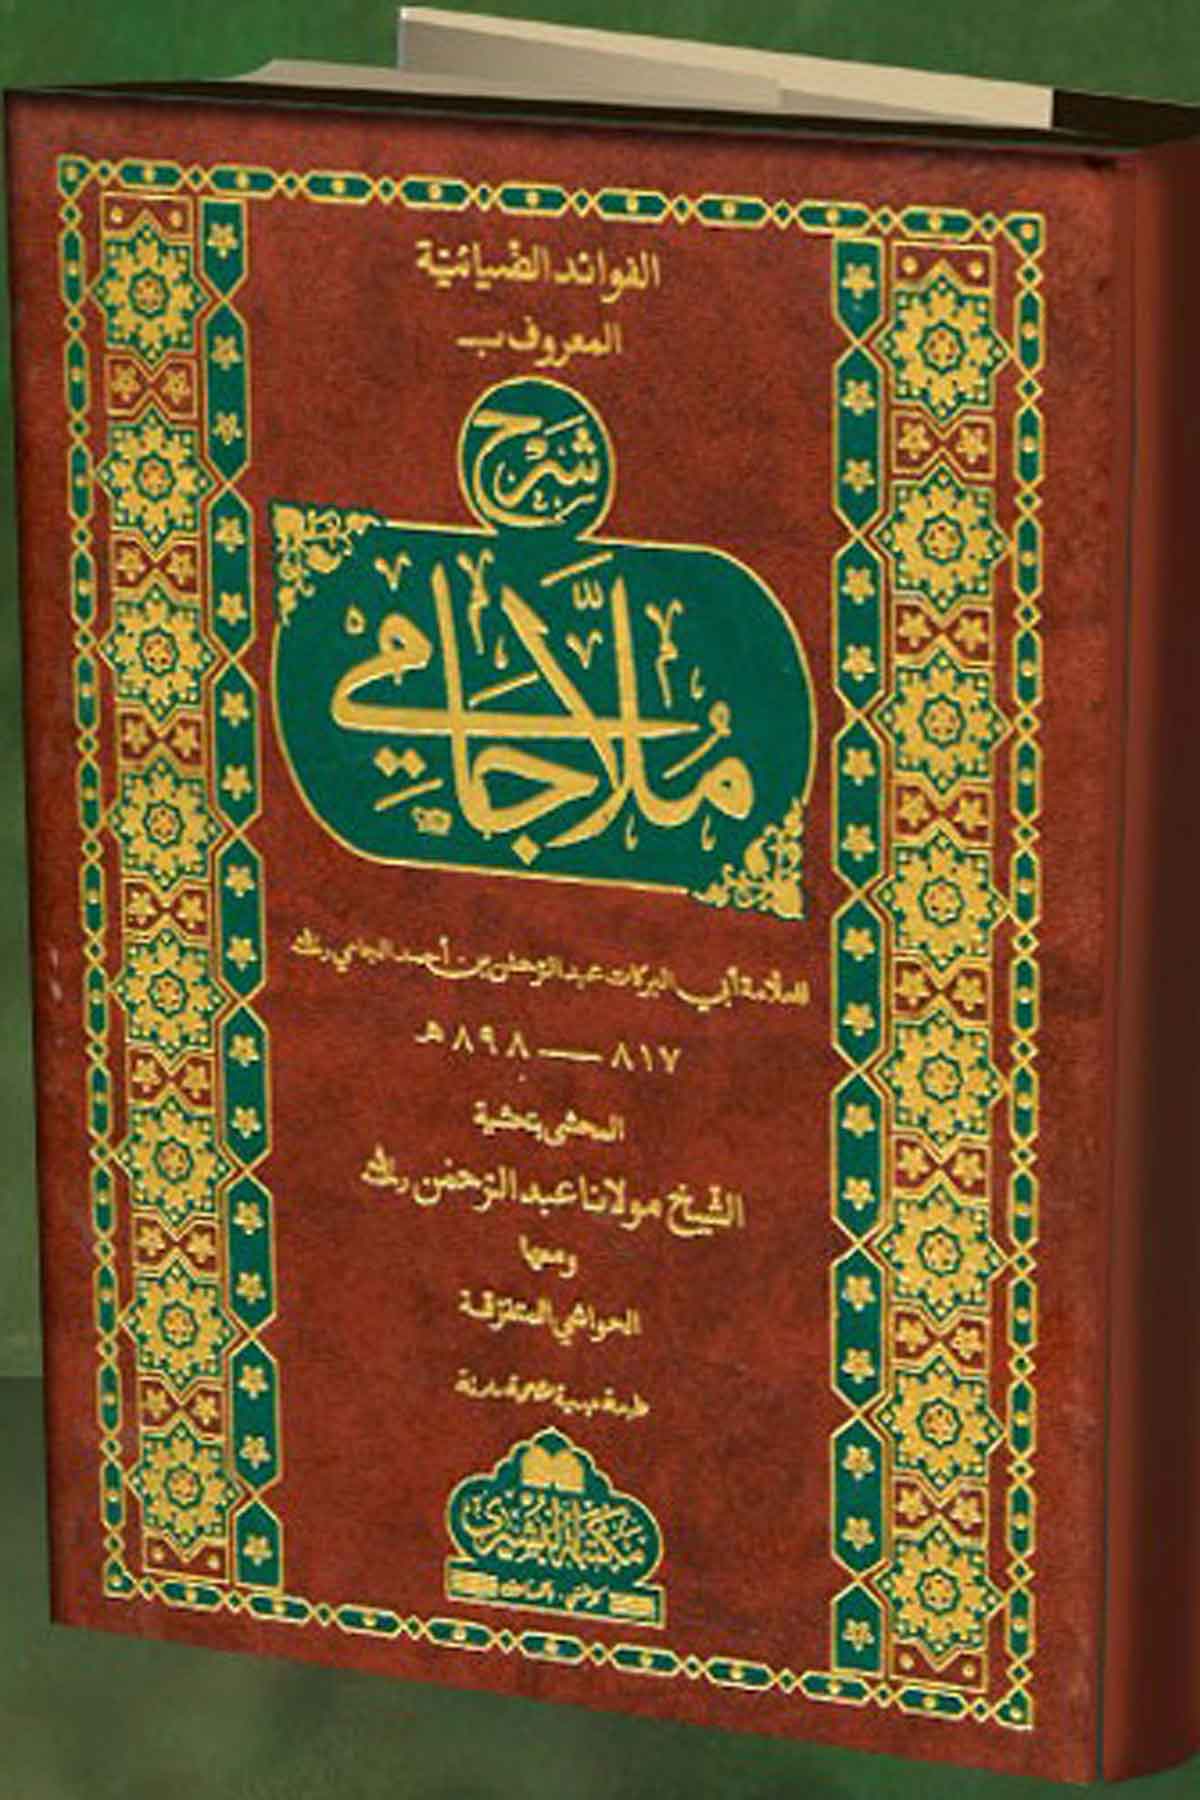 الفوائد الضيائية
المعروف بـ
شرح
ملا جامي
للعلامة أبي البركات عبد الرحمٰن بن أحمد الجامي رحمه الله
٨١٧ — ٨٩٨ هـ
المحشى بتحشية
الشيخ مولانا عبد الرحمٰن رحمه الله
ومعها
الحواشي المتفرقة
مكتبة البشرى
كراتشي - باكستان